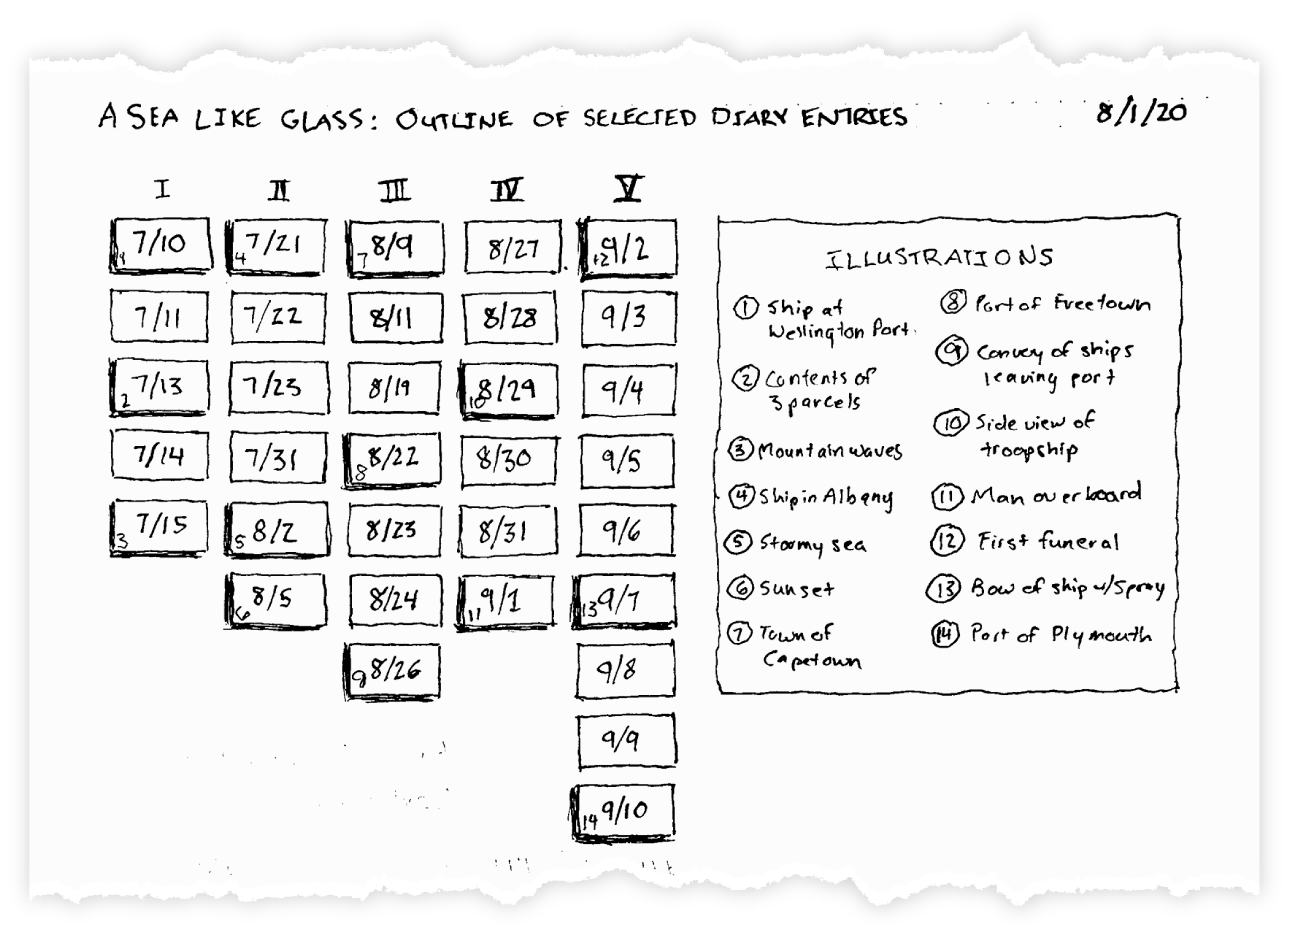 A SEA LIKE GLASS: OUTLINE OF SELECTED DIARY ENTRIES 8/1/20
I II III IV V
1 7/10 4 7/21 7 8/9 8/27 12 9/2
7/11 7/22 8/11 8/28 9/3
2 7/13 7/23 8/19 10 8/29 9/4
7/14 7/31 8 8/22 8/30 9/5
3 7/15 5 8/2 8/23 8/31 9/6
6 8/5 8/24 11 9/1 13 9/7
9 8/26 9/8
9/9
14 9/10
ILLUSTRATIONS
1 Ship at
Wellington Port.
2 Contents of
3 parcels
3 Mountain waves
4 Ship in Albany
5 Stormy sea
6 Sunset
7 Town of
Capetown
8 Port of Freetown
9 Convoy of ships
leaving port
10 Side view of
troopship
11 Man overboard
12 First funeral
13 Bow of ship w/Spray
14 Port of Plymouth